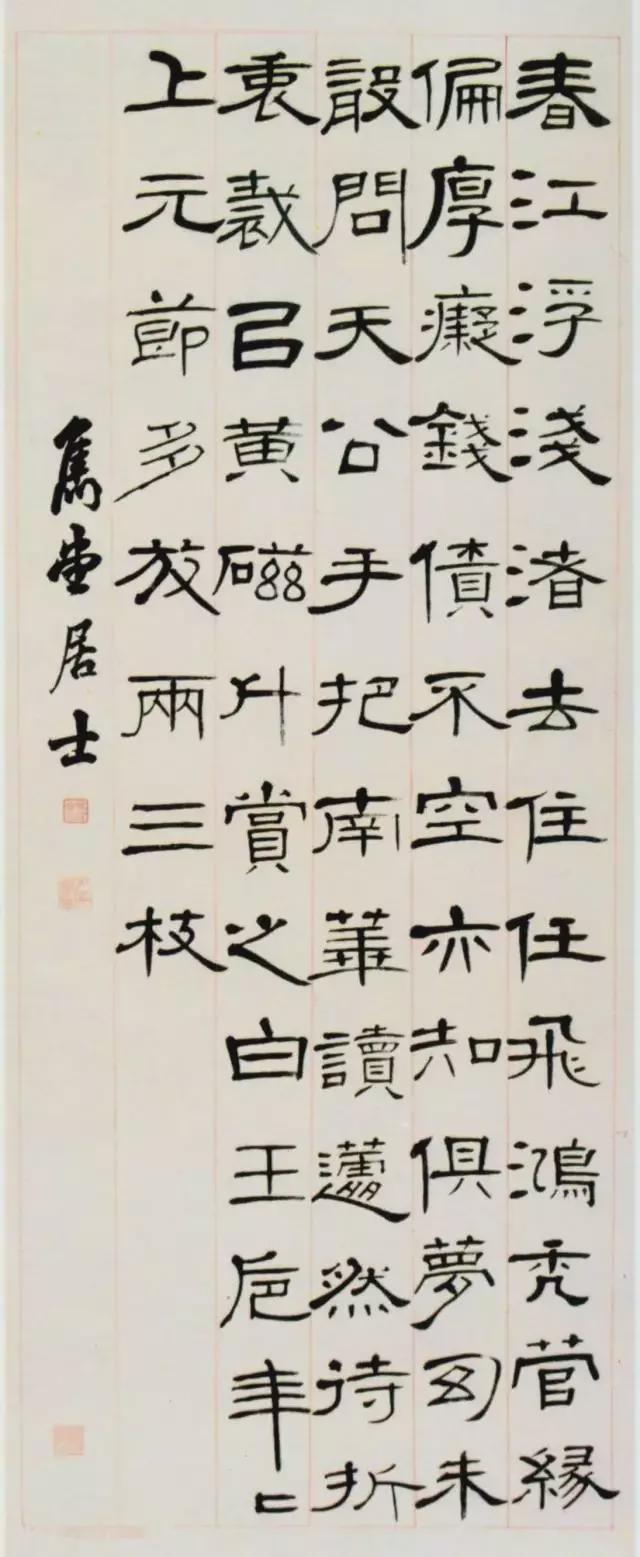 春江浮淺渚去住任飛鴻秃菅緣
偏厚癡錢債不空亦知俱夢幻未
敢問天公手把南華讀蘧然待折
衷裁㠯黃磁斗賞之白玉卮年二
上元節多放兩三枝
堂居士